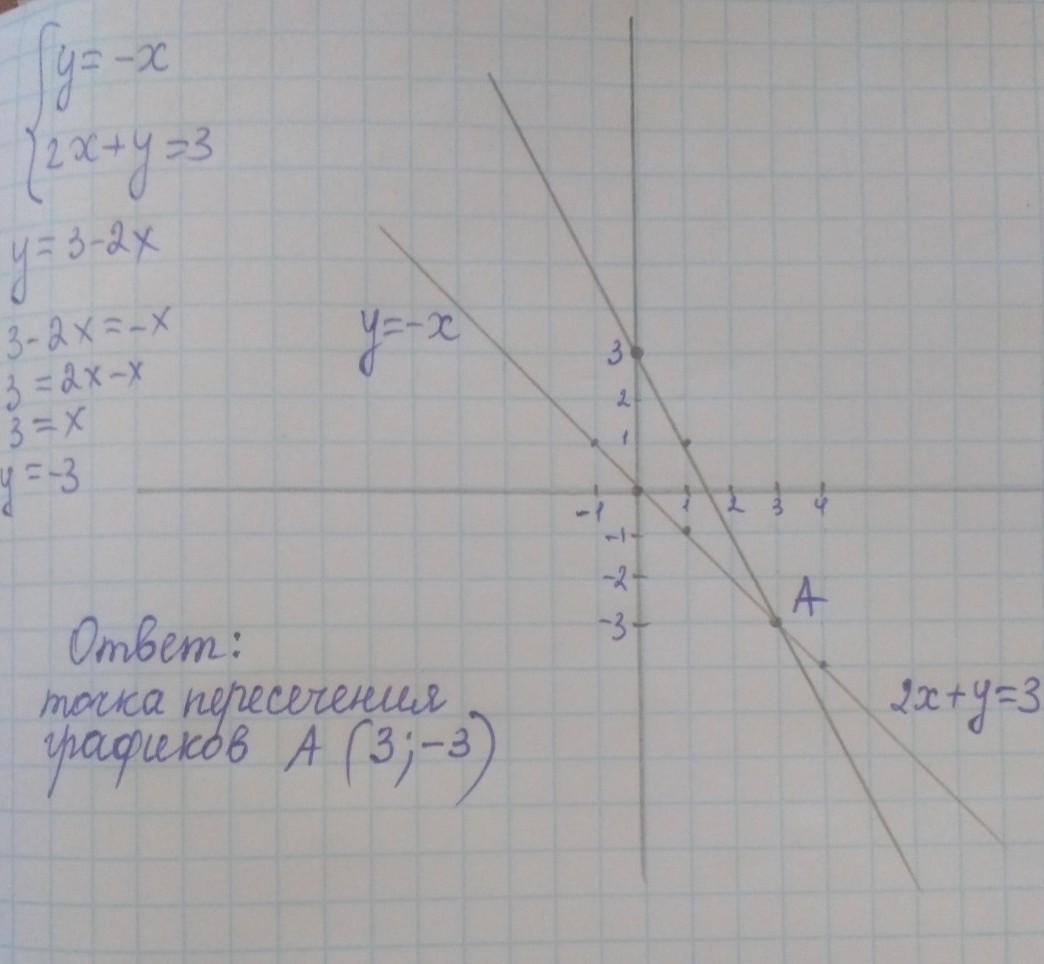 y = -x
2x + y = 3
y = 3 - 2x
3 - 2x = -x
3 = 2x - x
3 = x
y = -3
Ответ:
точка пересечения
графиков A (3; -3)
y = -x
3
2
1
-1 1 2 3 4
-1
-2
-3
A
2x + y = 3